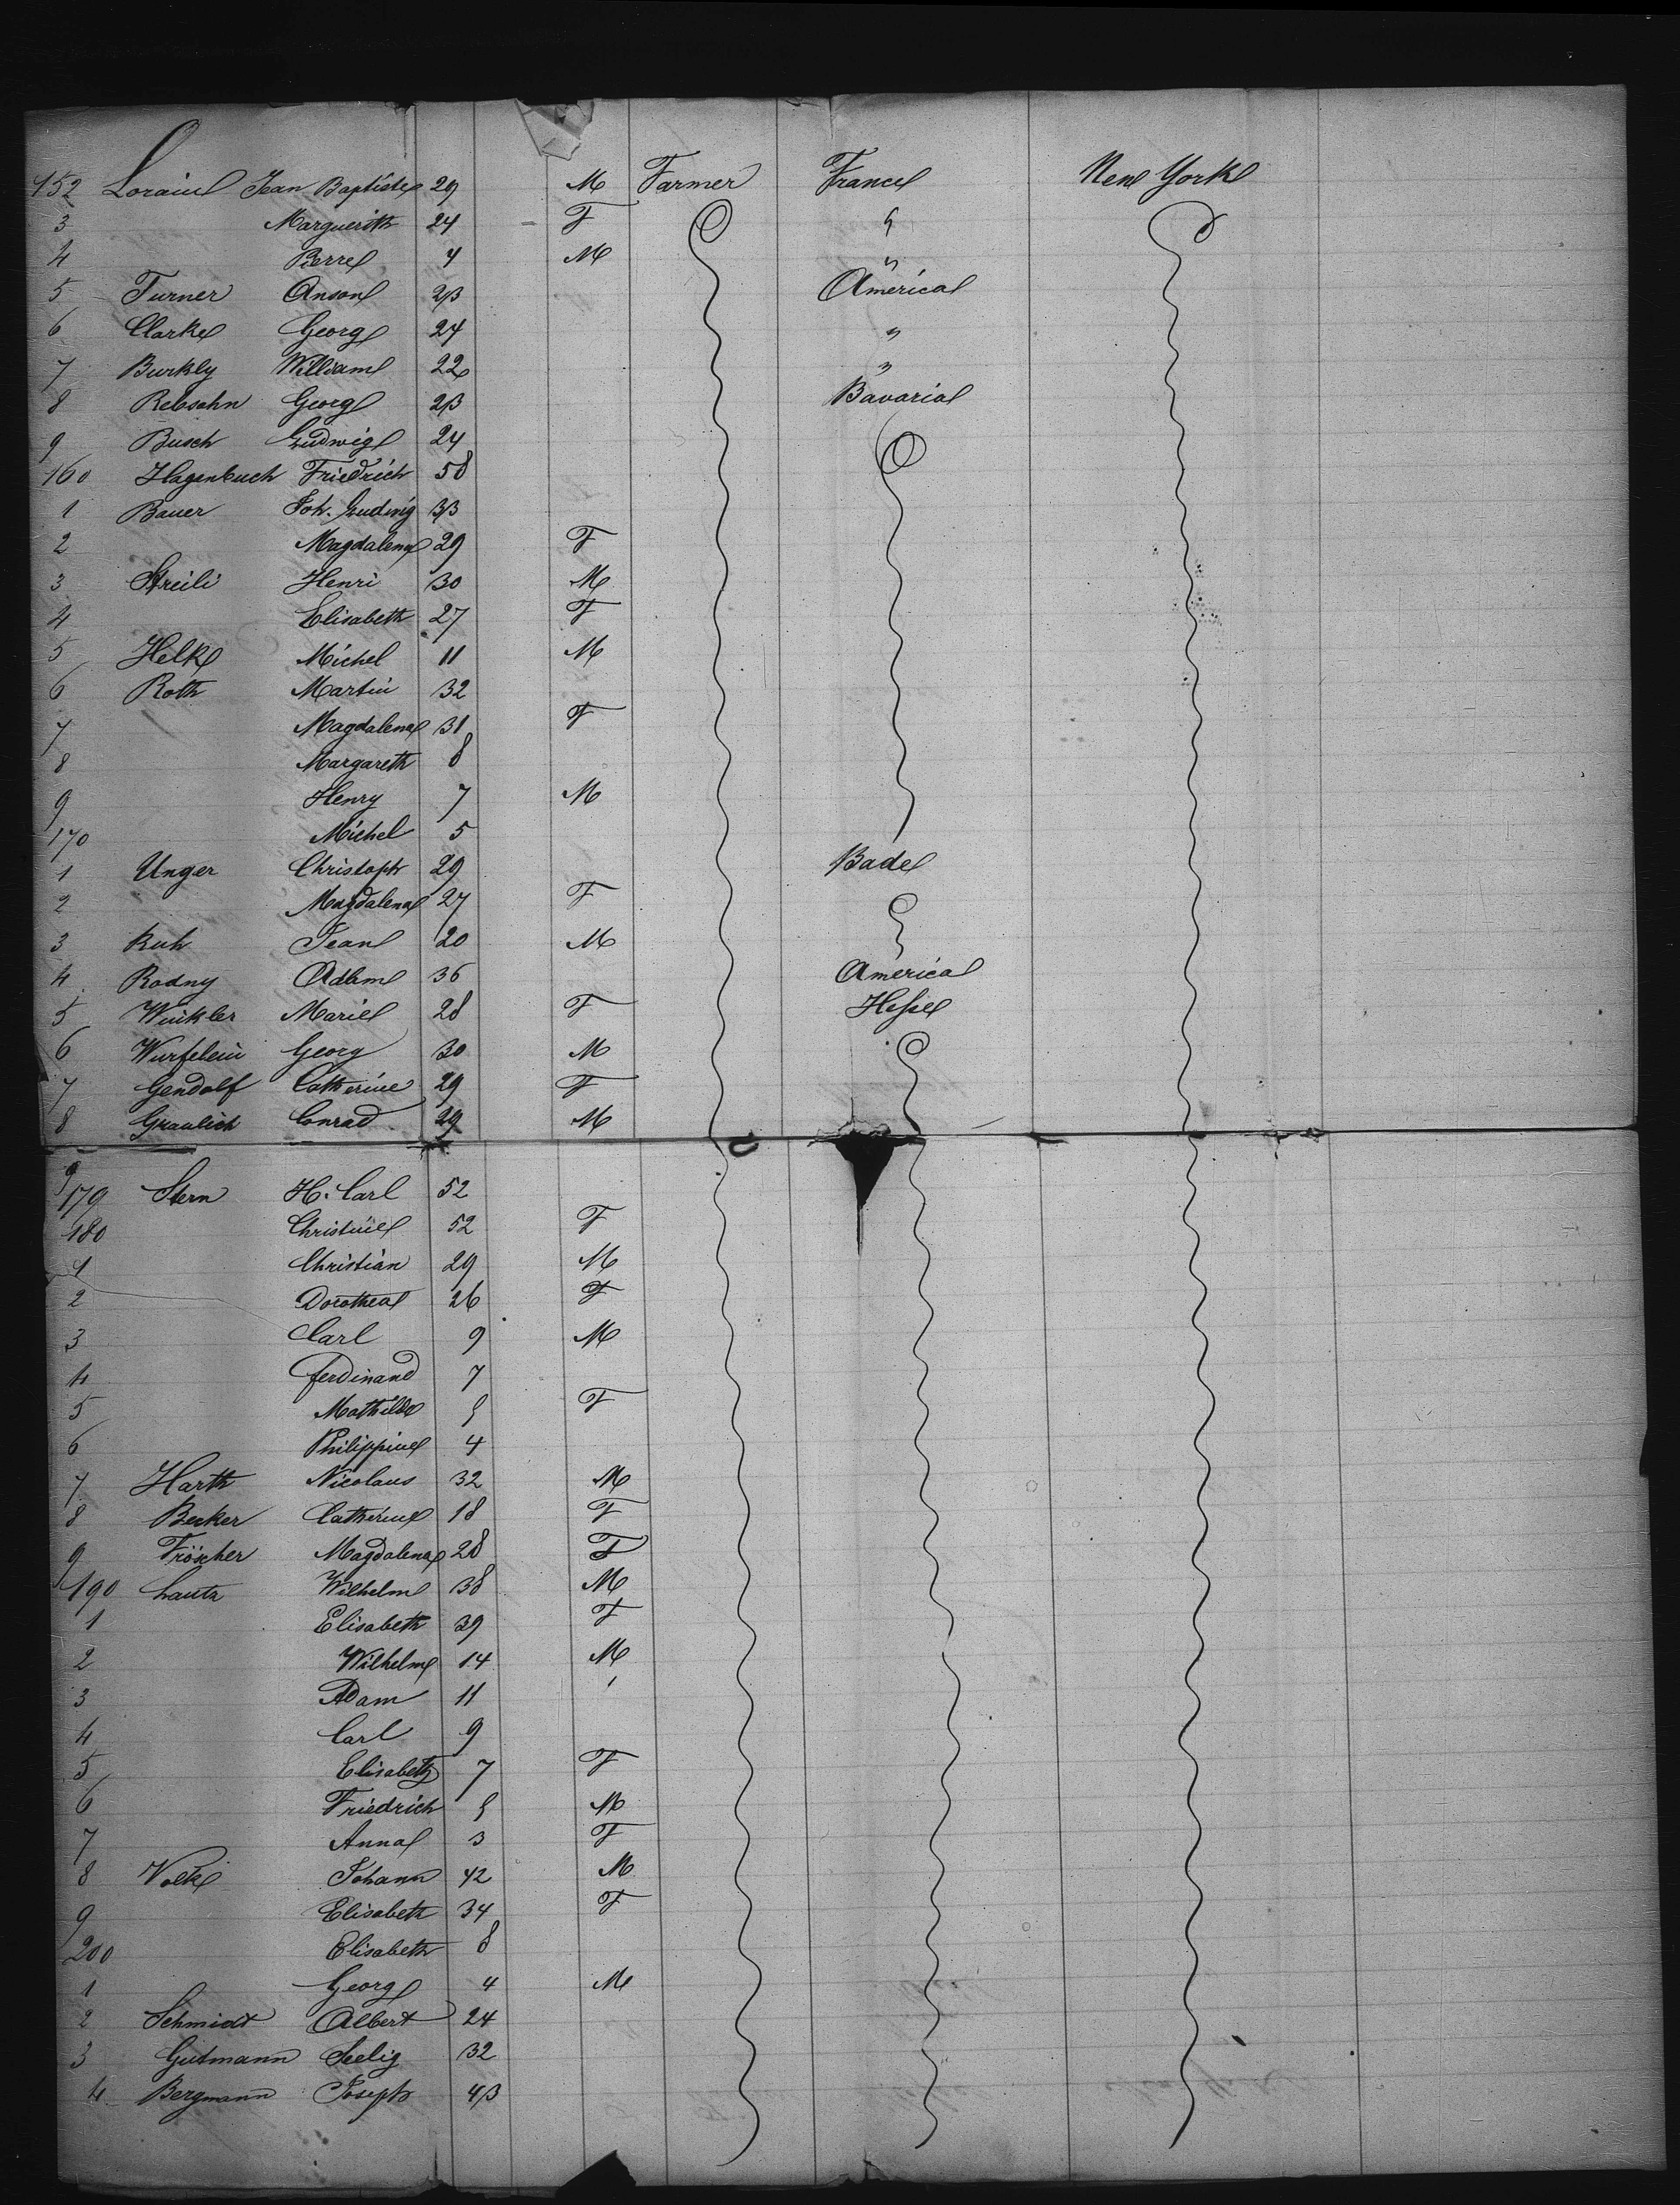 152 Loraine Jean Baptiste 29 M Farmer France New York
3 Marguerith 24 F "
4 Pierre 4 M "
5 Turner Anson 23 America
6 Clarke Georg 24 "
7 Burkly William 22 "
8 Rebsahn Georg 23 Bavaria
9 Busch Ludwig 24
160 Hagenbuch Friedrich 58
1 Bauer Joh. Ludwig 33
2 Magdalena 29 F
3 Streili Henri 30 M
4 Elisabeth 27 F
5 Helk Michel 11 M
6 Roth Martin 32
7 Magdalena 31 F
8 Margareth 8
9 Henry 7 M
170 Michel 5
1 Unger Christoph 29 Bade
2 Magdalena 27 F
3 Ruh Jean 20 M
4 Rodny Adam 36 America
5 Winkler Marie 28 F Hesse
6 Wurfelein Georg 30 M
7 Gendolf Catherine 29 F
8 Graulich Conrad 29 M
9
179 Stern H. Carl 52
180 Christine 52 F
1 Christian 29 M
2 Dorothea 26 F
3 Carl 9 M
4 Ferdinand 7
5 Mathilde 5 F
6 Philippine 4
7 Harth Nicolaus 32 M
8 Becker Catherine 18 F
9 Fröscher Magdalena 28 F
190 Lautz Wilhelm 38 M
1 Elisabeth 39 F
2 Wilhelm 14 M
3 Adam 11
4 Carl 9
5 Elisabeth 7 F
6 Friedrich 5 M
7 Anna 3 F
8 Volk Johann 42 M
9 Elisabeth 34 F
200 Elisabeth 8
1 Georg 4 M
2 Schmidt Albert 24
3 Gutmann Seelig 32
4 Bergmann Joseph 43